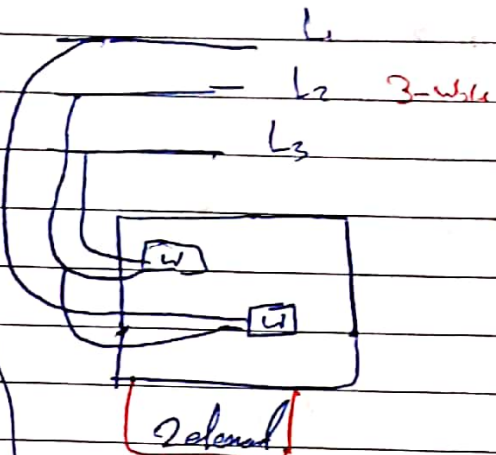 L1
L2 3-wire
L3
W
W
2 element